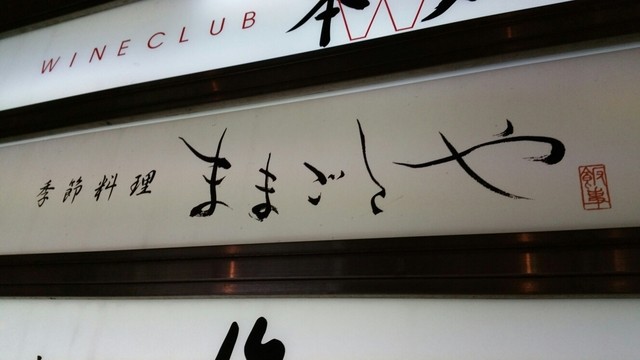 WINECLUB 本
季節料理 ままごとや 飯事